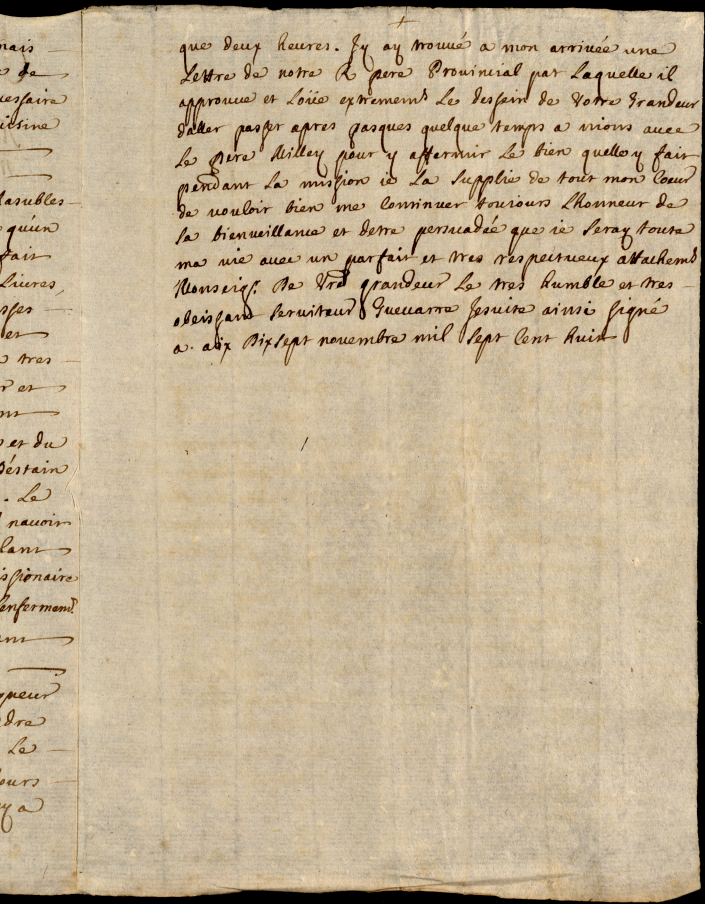 nais
de
uessaire
icisme
lasubles
qu'un
fait
Livres,
sses
et
tres
r et
nt
et du
Déstain
. Le
nauoir
lant
issionaire
enfermem.t
ant
gneur
dre
Le
ours
y a
que deux heures. Jy ay trouué a mon arriuée une
Lettre de notre R pere Provincial par Laquelle il
approuue et Loüe extremem.t Le dessein de Votre Grandeur
daller passer apres pasques quelque temps a nions auec
Le pere Milley pour y affermir Le bien quelle y fait
pendant La mission ie La Supplie de tout mon Coeur
de vouloir bien me Continuer toujours Lhonneur de
Sa bienveillance et detre persuadée que ie Seray toute
ma vie auec un parfait et tres respectueux attachem.t
Monseig.r De Vre grandeur Le tres humble et tres
obeissant Serviteur Gueuarre Jesuite ainsi Signé
a aix Dixsept novembre mil Sept Cent huit